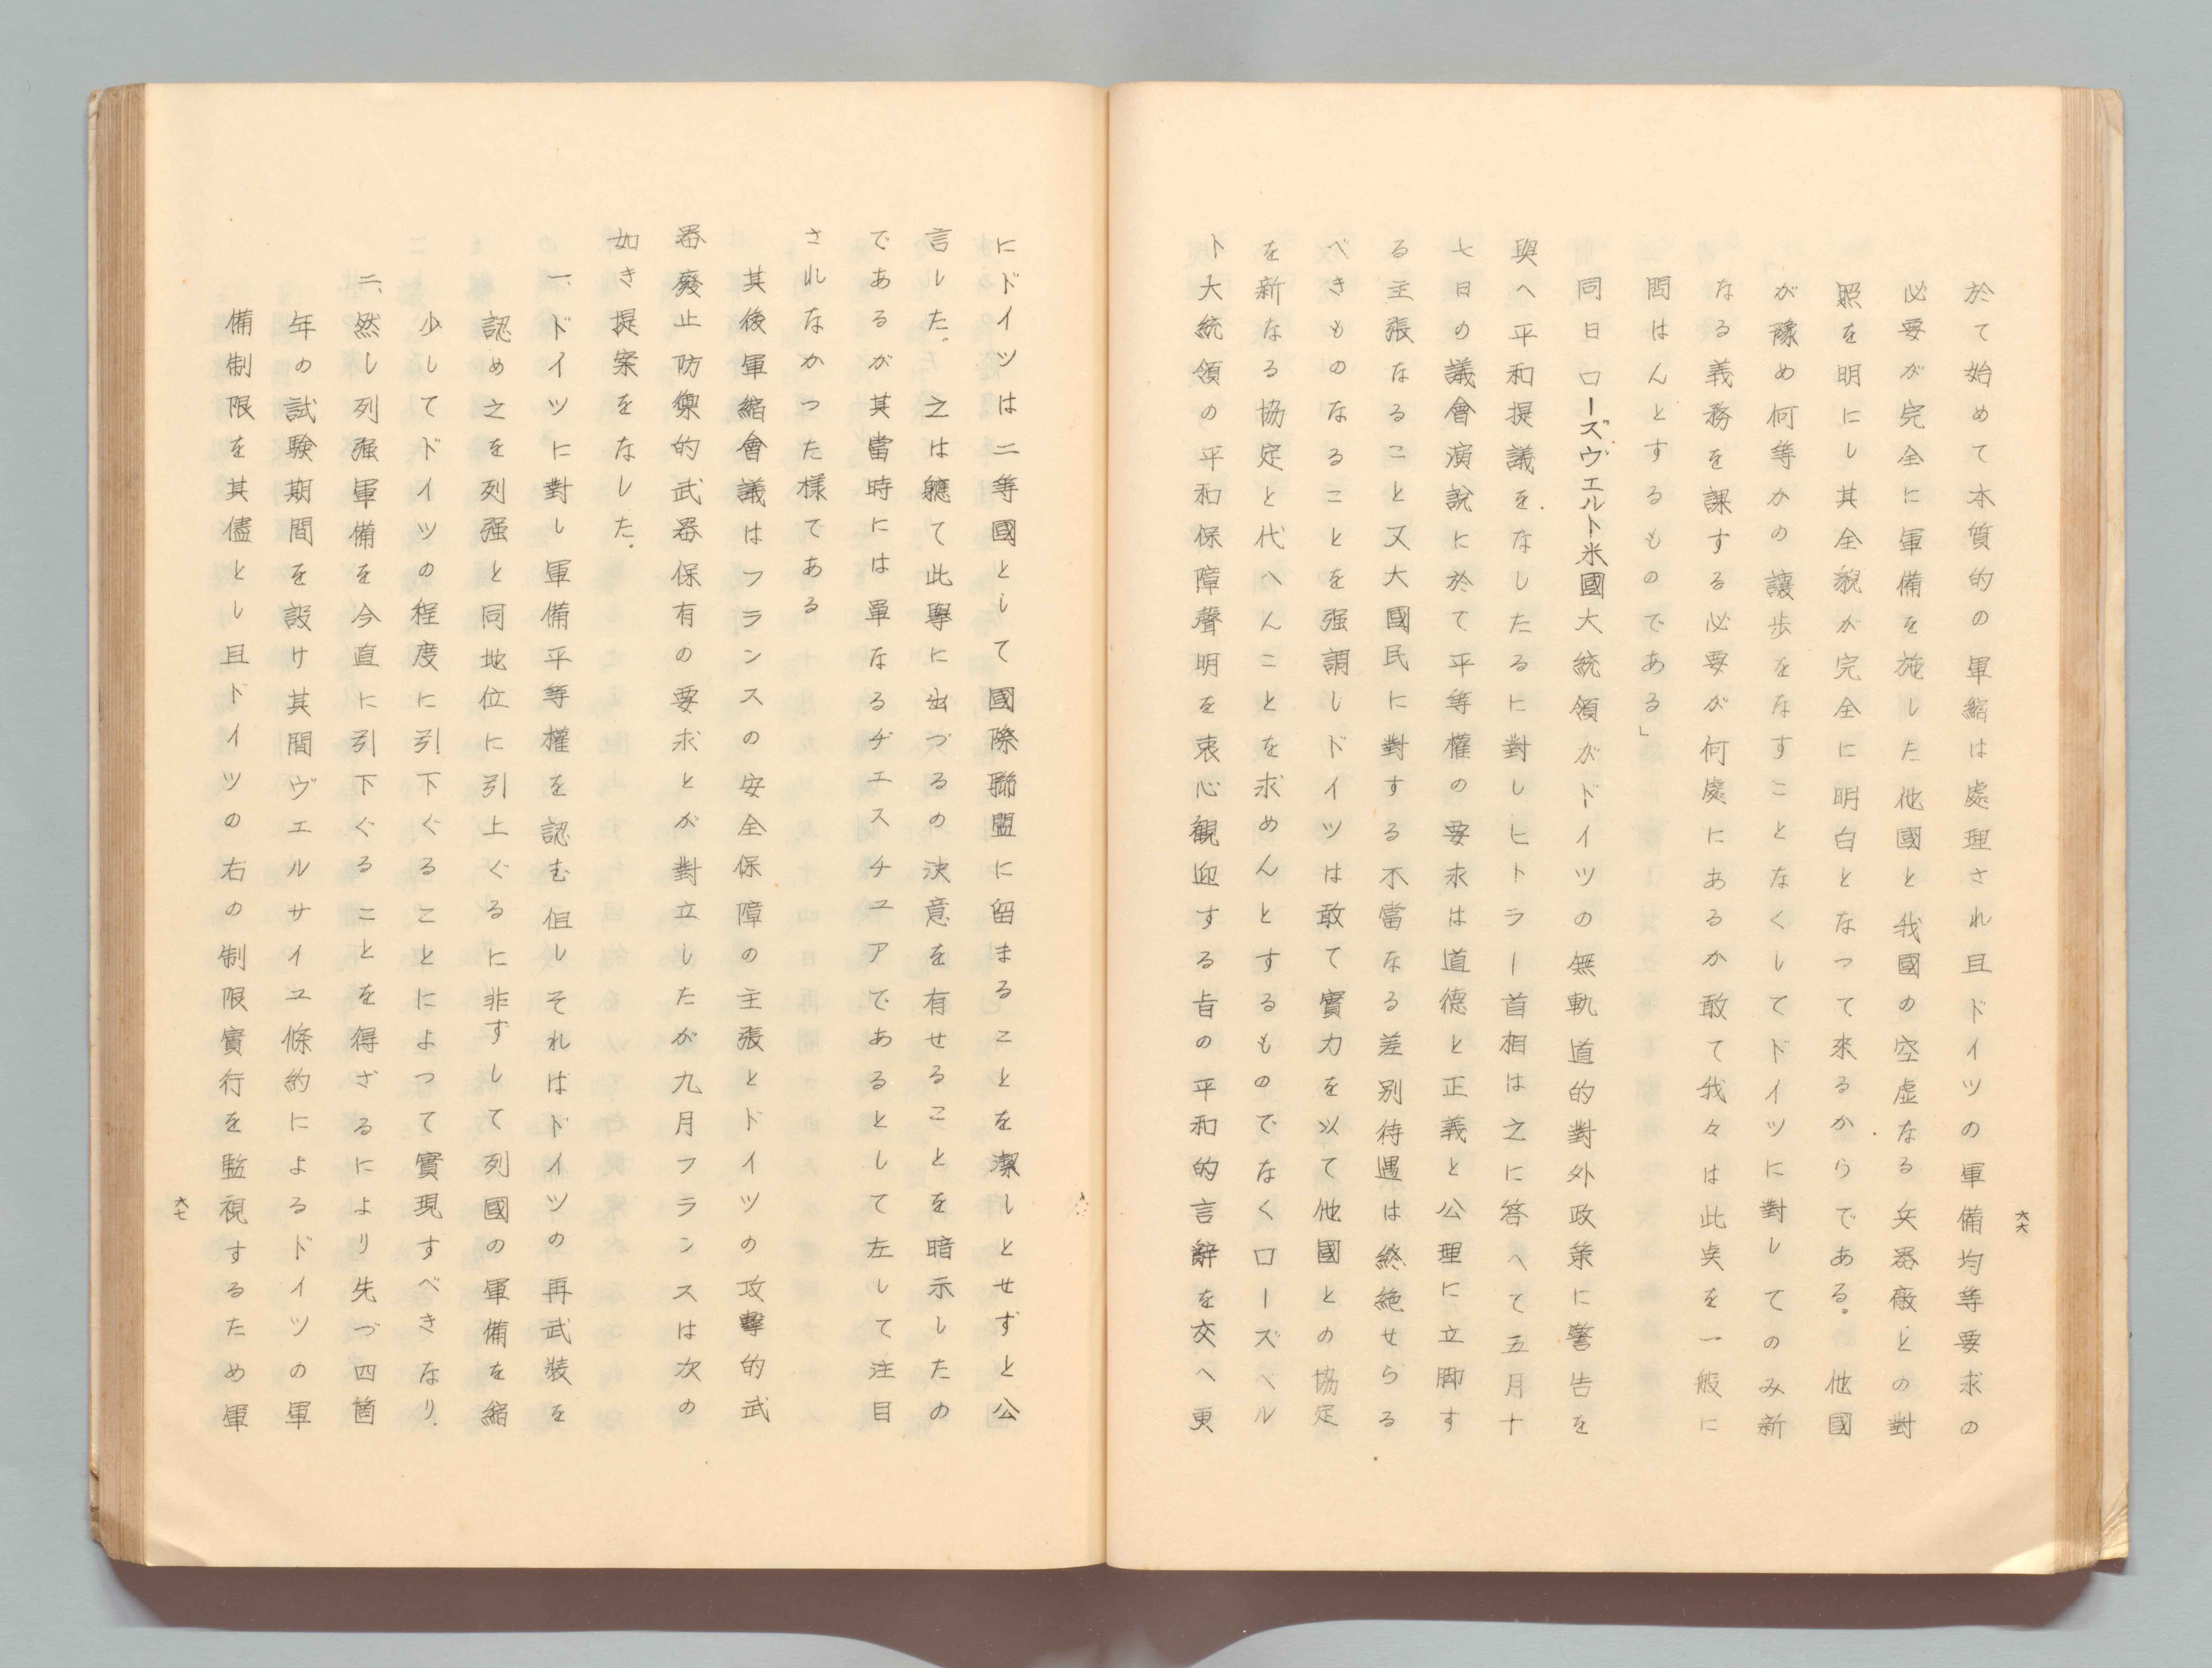 於て始めて本質的の軍縮は處理され且ドイツの軍備均等要求の
必要が完全に軍備を施した他國と我國の空虛なる兵器廠との對
照を明にし其全貌が完全に明白となつて來るからである。他國
が豫め何等かの讓歩をなすことなくしてドイツに對してのみ新
なる義務を課する必要が何處にあるか敢て我々は此奌を一般に
問はんとするものである」
同日ローズヴエルト米國大統領がドイツの無軌道的對外政策に警告を
與へ平和提議をなしたるに對しヒトラー首相は之に答へて五月十
七日の議會演說に於て平等權の要求は道德と正義と公理に立脚す
る主張なること又大國民に對する不當なる差別待遇は終絶せらる
べきものなることを强調しドイツは敢て實力を以て他國との協定
を新なる協定と代へんことを求めんとするものでなくローズベル
ト大統領の平和保障聲明を衷心観迎する旨の平和的言辭を交へ更
六六
にドイツは二等國として國際聯盟に留まることを潔しとせずと公
言した。之は軈て此擧に出づるの決意を有せることを暗示したの
であるが其當時には單なるヂエスチユアであるとして左して注目
されなかつた様である
其後軍縮會議はフランスの安全保障の主張とドイツの攻擊的武
器廢止防禦的武器保有の要求とが對立したが九月フランスは次の
如き提案をなした.
一、ドイツに對し軍備平等權を認む但しそれはドイツの再武裝を
認め之を列强と同地位に引上ぐるに非ずして列國の軍備を縮
少してドイツの程度に引下ぐることによつて實現すべきなり.
二、然し列强軍備を今直に引下ぐることを得ざるにより先づ四箇
年の試驗期間を設け其間ヴエルサイユ條約によるドイツの軍
備制限を其儘とし且ドイツの右の制限實行を監視するため軍
六七